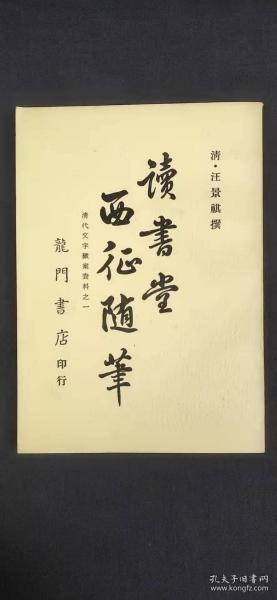 清·汪景祺撰
讀書堂
西征随筆
清代文字獄案資料之一
龍門書店印行
孔夫子旧书网